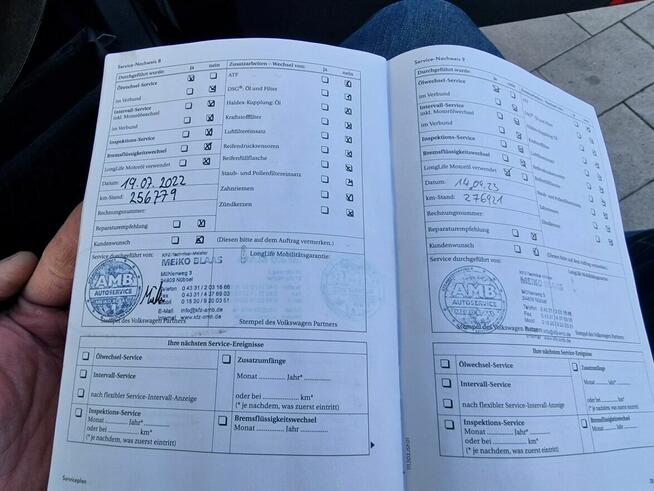 Service-Nachweis 8
Durchgeführt wurde: ja nein
Ölwechsel-Service
im Verbund
Intervall-Service
inkl. Motorölwechsel
im Verbund
Inspektions-Service
Bremsflüssigkeitswechsel
LongLife Motoröl verwendet
Datum: 19.07.2022
km-Stand: 256779
Rechnungsnummer:
Reparaturempfehlung
Kundenwunsch (Diesen bitte auf dem Auftrag vermerken.)
Zusatzarbeiten – Wechsel von: ja nein
ATF
DSG®: Öl und Filter
Haldex-Kupplung: Öl
Kraftstofffilter
Luftfiltereinsatz
Reifendrucksensoren
Reifenfüllflasche
Staub- und Pollenfiltereinsatz
Zahnriemen
Zündkerzen
Service durchgeführt von: LongLife Mobilitätsgarantie:
AMB
AUTOSERVICE
KFZ-Techniker-Meister
MEIKO BLAAS
Mühlenweg 3
24809 Nübbel
Telefon
E-Mail info@kfz-amb.de
Internet www.kfz-amb.de
Stempel des Volkswagen Partners Stempel des Volkswagen Partners
Ihre nächsten Service-Ereignisse
Ölwechsel-Service
Intervall-Service
nach flexibler Service-Intervall-Anzeige
Inspektions-Service
Monat ............ Jahr*............
oder bei ............ km*
(* je nachdem, was zuerst eintritt)
Zusatzumfänge
Monat ............ Jahr*............
oder bei ............ km*
(* je nachdem, was zuerst eintritt)
Bremsflüssigkeitswechsel
Monat ............ Jahr ............
Serviceplan
Service-Nachweis 9
Durchgeführt wurde:
Ölwechsel-Service
im Verbund
Intervall-Service
inkl. Motorölwechsel
im Verbund
Inspektions-Service
Bremsflüssigkeitswechsel
LongLife Motoröl verwendet
Datum: 14.09.23
km-Stand: 276921
Rechnungsnummer:
Reparaturempfehlung
Kundenwunsch
Zahnriemen
Zündkerzen
Service durchgeführt von:
AMB
AUTOSERVICE
MEIKO BLAAS
Stempel des Volkswagen Partners
Ihre nächsten Service-Ereignisse
Ölwechsel-Service
Intervall-Service
nach flexibler Service-Intervall-Anzeige
Inspektions-Service
Monat ............ Jahr*............
oder bei ............ km*
(* je nachdem, was zuerst eintritt)
Zusatzumfänge
Monat ............
oder bei ............
(* je nachdem, was
Bremsflüssigkeitswechsel
Monat ............ Jahr